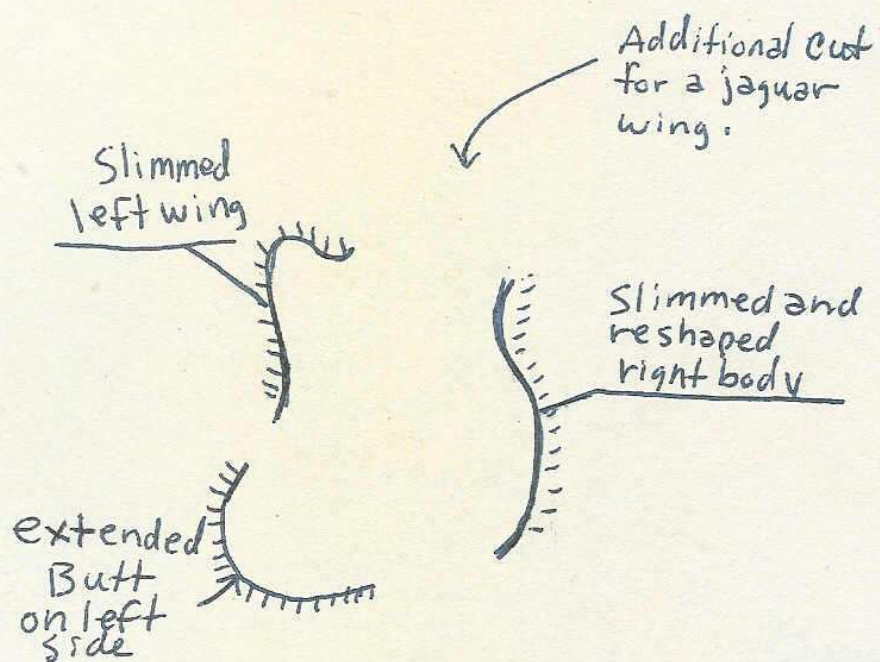 Additional cut
for a jaguar
wing.
Slimmed
left wing
Slimmed and
reshaped
right body
extended
Butt
on left
side